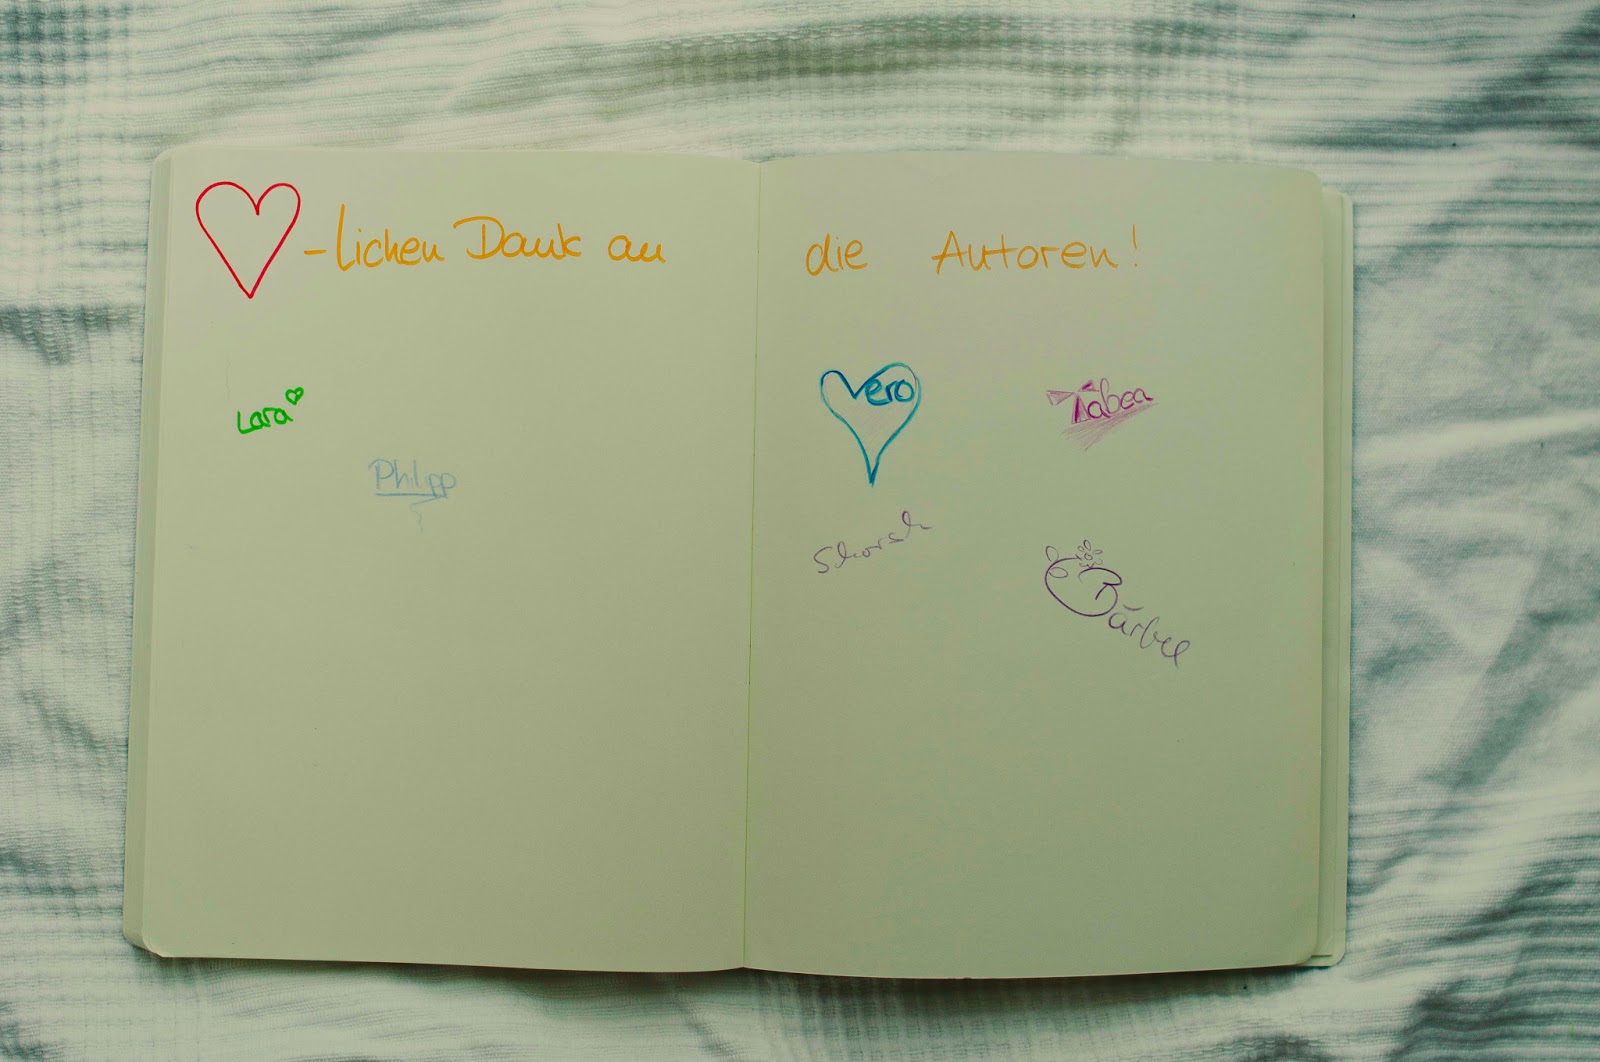 -lichen Dank an die Autoren!
Lara
Philipp
Vero
Tabea
Schorsch
Bärbel